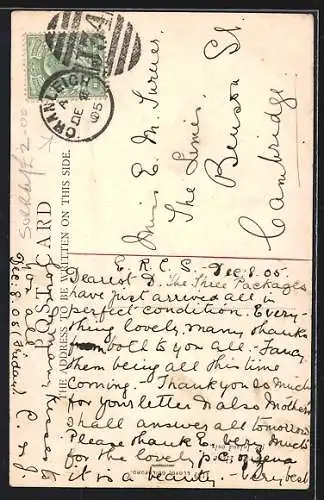 CRANLEIGH
DE 8
05
POST CARD
THE ADDRESS TO BE WRITTEN ON THIS SIDE.
Miss E. M. Turner
The Limes
Benson St.
Cambridge.
E. R. C. S. Dec. 8. 05.
Dearest D. The Three Packages
have just arrived all in
perfect condition. Every-
thing lovely, many thanks
from both to you all. Fancy
them being all this time
coming. Thank you so much
for your letter & also Mothers
shall answer all tomorrow
Please thank E. very much
for the lovely p.c. of Jena
it is a beauty. Very best
love & many kisses to
Dec: 8 05